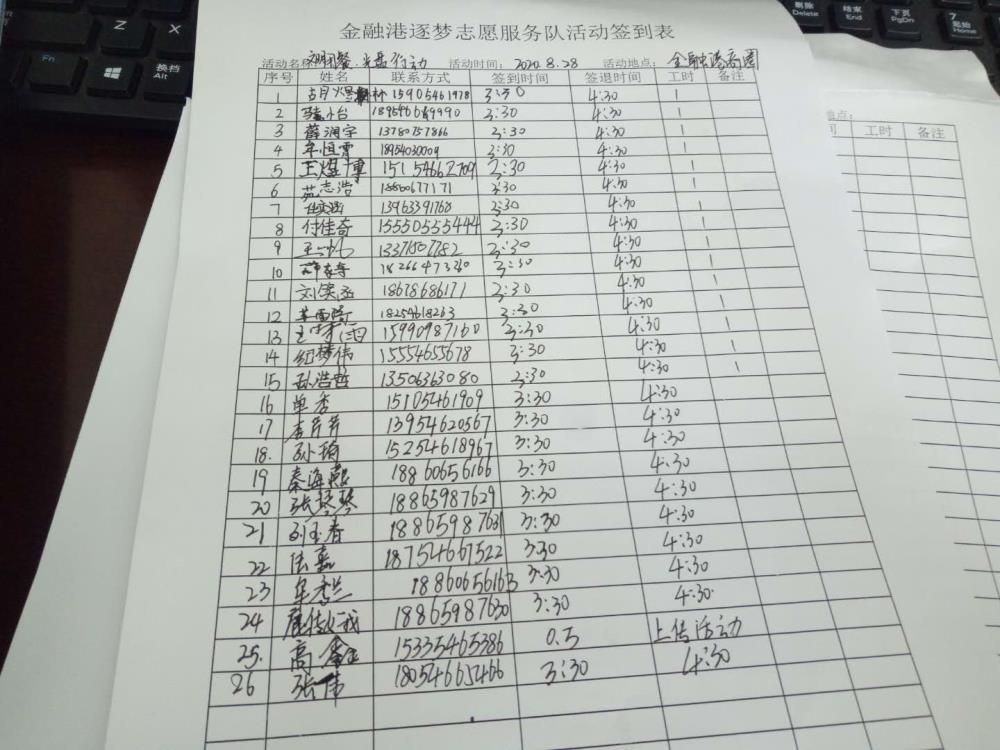 金融港逐梦志愿服务队活动签到表
活动名称: 光盘行动 活动时间: 2020.8.28 活动地点: 金融港商圈
序号 姓名 联系方式 签到时间 签退时间 工时 备注
1 15905461978 3:30 4:30 1
2 3:30 4:30 1
3 薛润宇 13780757866 3:30 4:30 1
4 牟恒雪 18954030009 3:30 4:30 1
5 王煜博 15154662709 3:30 4:30 1
6 苑志浩 18860677171 3:30 4:30 1
7 13963391768 3:30 4:30 1
8 付佳奇 15550555444 3:30 4:30 1
9 13371507782 3:30 4:30 1
10 18266473260 3:30 4:30 1
11 刘笑涵 18678686171 3:30 4:30 1
12 18254618263 3:30 4:30 1
13 15990987160 3:30 4:30 1
14 15554655678 3:30 4:30 1
15 孙浩哲 13506363080 3:30 4:30 1
16 单秀 15105461909 3:30 4:30
17 李芹芹 13954620567 3:30 4:30
18. 孙梅 15254618967 3:30 4:30
19 秦海燕 18860656166 3:30 4:30
20 张琴琴 18865987629 3:30 4:30
21 18865987631 3:30 4:30
22 陆嘉 18754667522 3:30 4:30
23 牟秀兰 18860656163 3:30 4:30
24 18865987630 3:30 4:30
25. 高 15335465386 0.5 上传活动
26 张伟 18054665466 3:30 4:30
地点:
工时 备注
Fn
Z
Alt
换档
删除
Del
结束
End
下页
PgDn
7
起始
Home